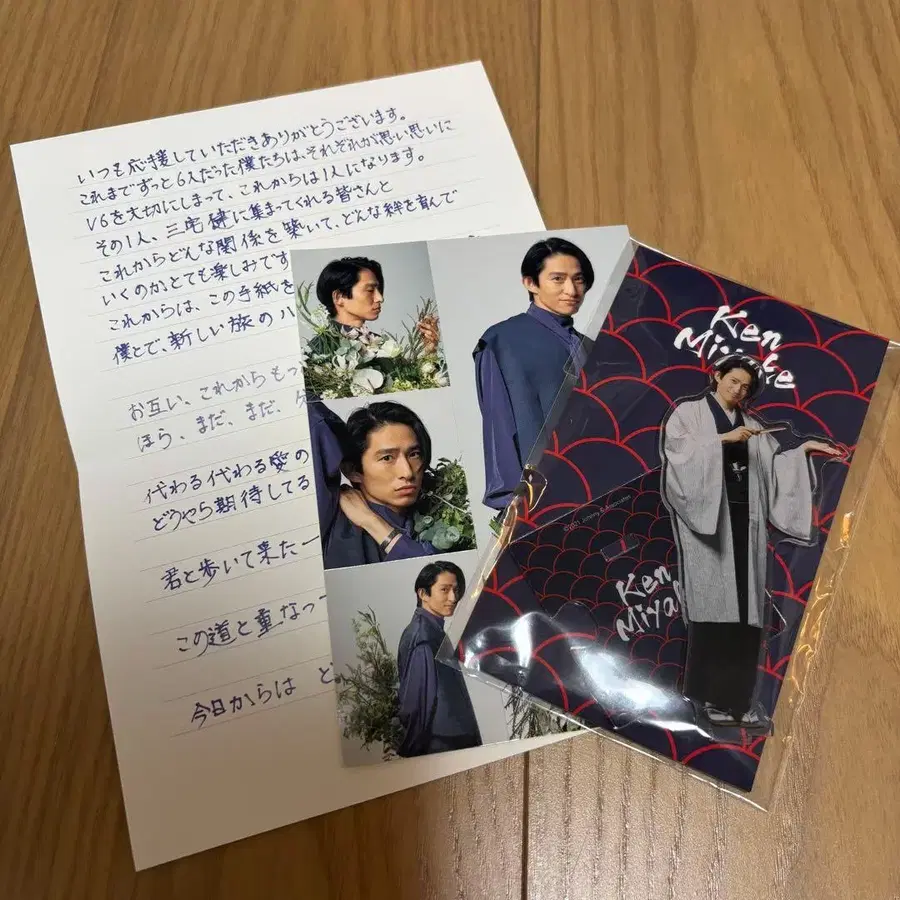 いつも応援していただきありがとうございます。
これまでずっと6人だった僕たちは、それぞれが思い思いに
V6を大切にしまって、これからは1人になります。
その1人、三宅健に集まってくれる皆さんと
これからどんな関係を築いて、どんな絆を育んで
いくのか、とても楽しみです
これからは、この手紙を
僕とで、新しい旅の
お互い、これからもっ
ほら、まだ、まだ、
代わる代わる愛の
どうやら期待してる
君と歩いて来た一
この道と重なっ
今日からは ど
Ken
Miyake
©2021 Johnny & Associates
Ken
Miyak